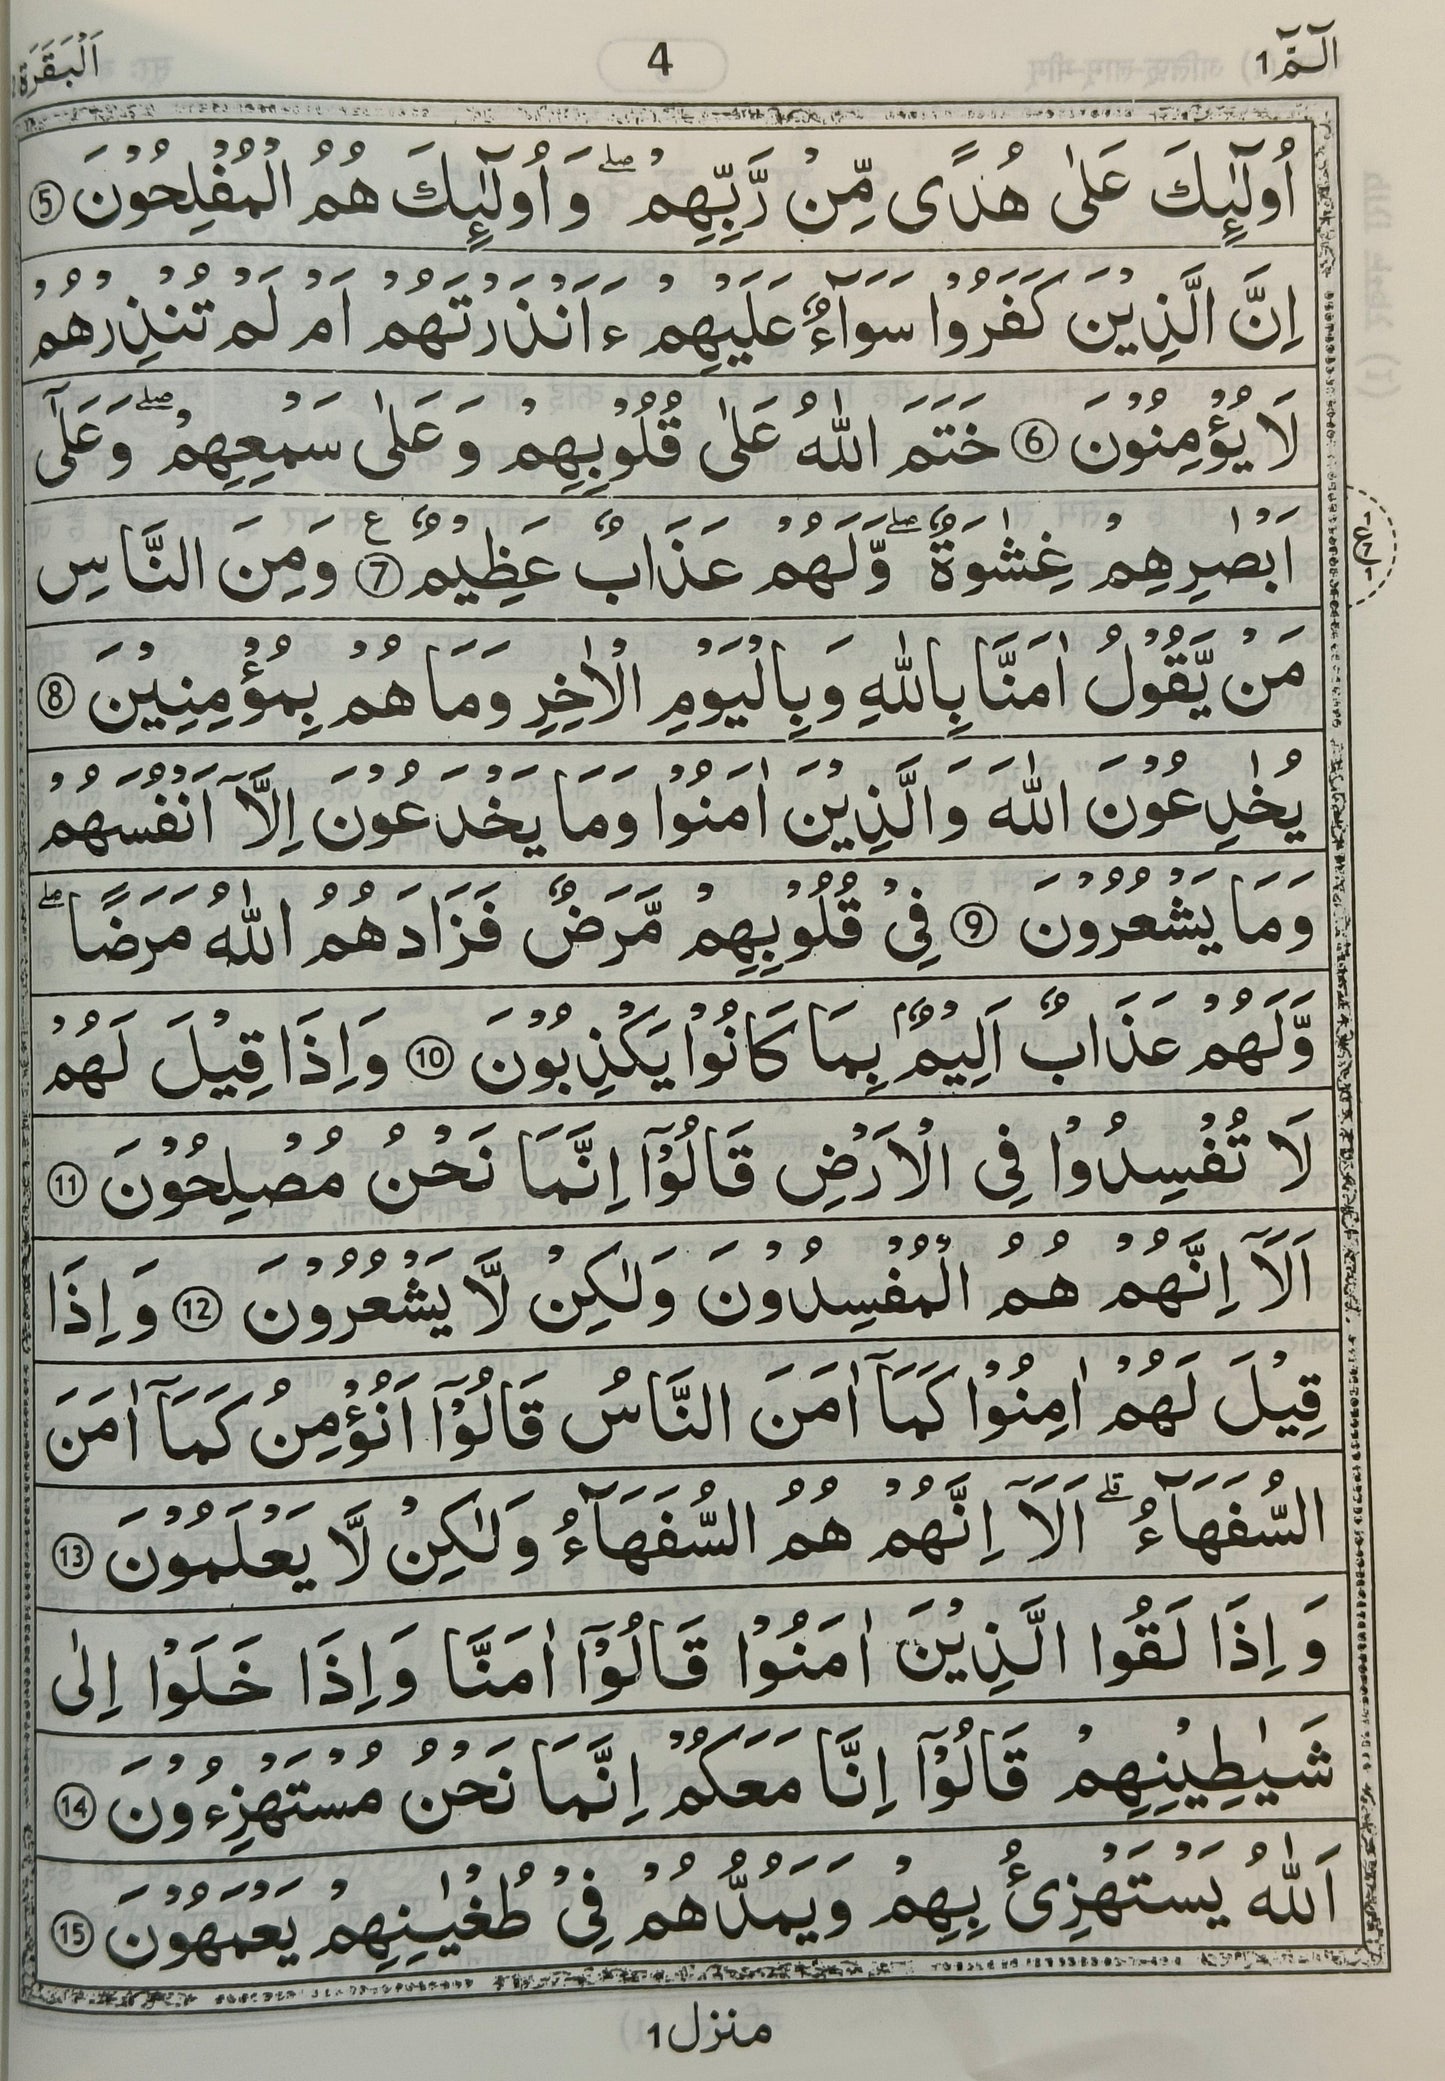 الٓمّٓ 1
4
اَلْبَقَرَة
اُولٰٓئِكَ عَلٰى هُدًى مِّنْ رَّبِّهِمْ ۖ وَ اُولٰٓئِكَ هُمُ الْمُفْلِحُوْنَ 5
اِنَّ الَّذِيْنَ كَفَرُوْا سَوَآءٌ عَلَيْهِمْ ءَاَنْذَرْتَهُمْ اَمْ لَمْ تُنْذِرْهُمْ
لَا يُؤْمِنُوْنَ 6 خَتَمَ اللّٰهُ عَلٰى قُلُوْبِهِمْ وَعَلٰى سَمْعِهِمْ ۖ وَعَلٰٓى
اَبْصٰرِهِمْ غِشٰوَةٌ ۖ وَّلَهُمْ عَذَابٌ عَظِيْمٌ 7 ع وَمِنَ النَّاسِ
مَنْ يَّقُوْلُ اٰمَنَّا بِاللّٰهِ وَبِالْيَوْمِ الْاٰخِرِ وَمَا هُمْ بِمُؤْمِنِيْنَ 8
يُخٰدِعُوْنَ اللّٰهَ وَالَّذِيْنَ اٰمَنُوْا وَمَا يَخْدَعُوْنَ اِلَّآ اَنْفُسَهُمْ
وَمَا يَشْعُرُوْنَ 9 فِىْ قُلُوْبِهِمْ مَّرَضٌ فَزَادَهُمُ اللّٰهُ مَرَضًا ۖ
وَّلَهُمْ عَذَابٌ اَلِيْمٌۢ بِمَا كَانُوْا يَكْذِبُوْنَ 10 وَاِذَا قِيْلَ لَهُمْ
لَا تُفْسِدُوْا فِى الْاَرْضِ قَالُوْٓا اِنَّمَا نَحْنُ مُصْلِحُوْنَ 11
اَلَآ اِنَّهُمْ هُمُ الْمُفْسِدُوْنَ وَلٰكِنْ لَّا يَشْعُرُوْنَ 12 وَاِذَا
قِيْلَ لَهُمْ اٰمِنُوْا كَمَآ اٰمَنَ النَّاسُ قَالُوْٓا اَنُؤْمِنُ كَمَآ اٰمَنَ
السُّفَهَآءُ ۗ اَلَآ اِنَّهُمْ هُمُ السُّفَهَآءُ وَلٰكِنْ لَّا يَعْلَمُوْنَ 13
وَاِذَا لَقُوا الَّذِيْنَ اٰمَنُوْا قَالُوْٓا اٰمَنَّا وَاِذَا خَلَوْا اِلٰى
شَيٰطِيْنِهِمْ قَالُوْٓا اِنَّا مَعَكُمْ اِنَّمَا نَحْنُ مُسْتَهْزِءُوْنَ 14
اَللّٰهُ يَسْتَهْزِئُ بِهِمْ وَيَمُدُّهُمْ فِىْ طُغْيٰنِهِمْ يَعْمَهُوْنَ 15
منزل 1